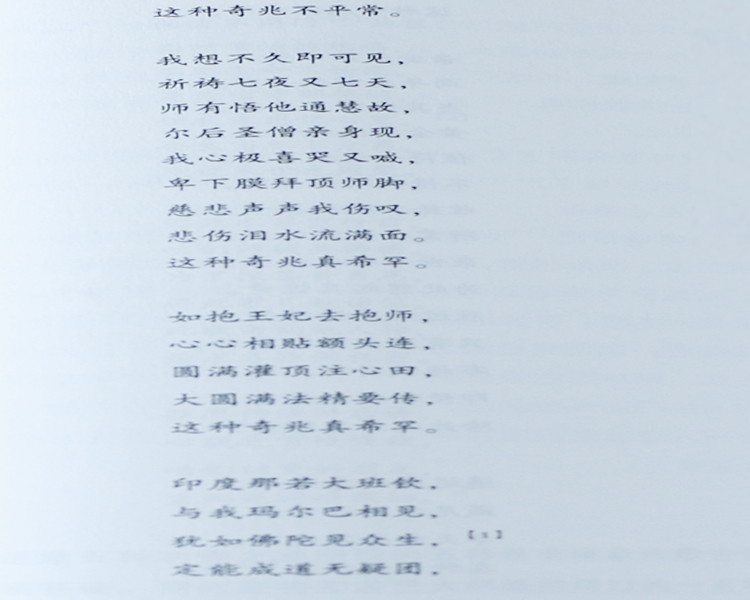 这种奇兆不平常。
我想不久即可见，
祈祷七夜又七天，
师有悟他通慧故，
尔后圣僧亲身现，
我心极喜哭又喊，
卑下膜拜顶师脚，
慈悲声声我伤叹，
悲伤泪水流满面。
这种奇兆真希罕。
如抱王妃去抱师，
心心相贴额头连，
圆满灌顶注心田，
大圆满法精要传，
这种奇兆真希罕。
印度那若大班钦，
与我玛尔巴相见，
犹如佛陀见众生，【1】
定能成道无疑团，